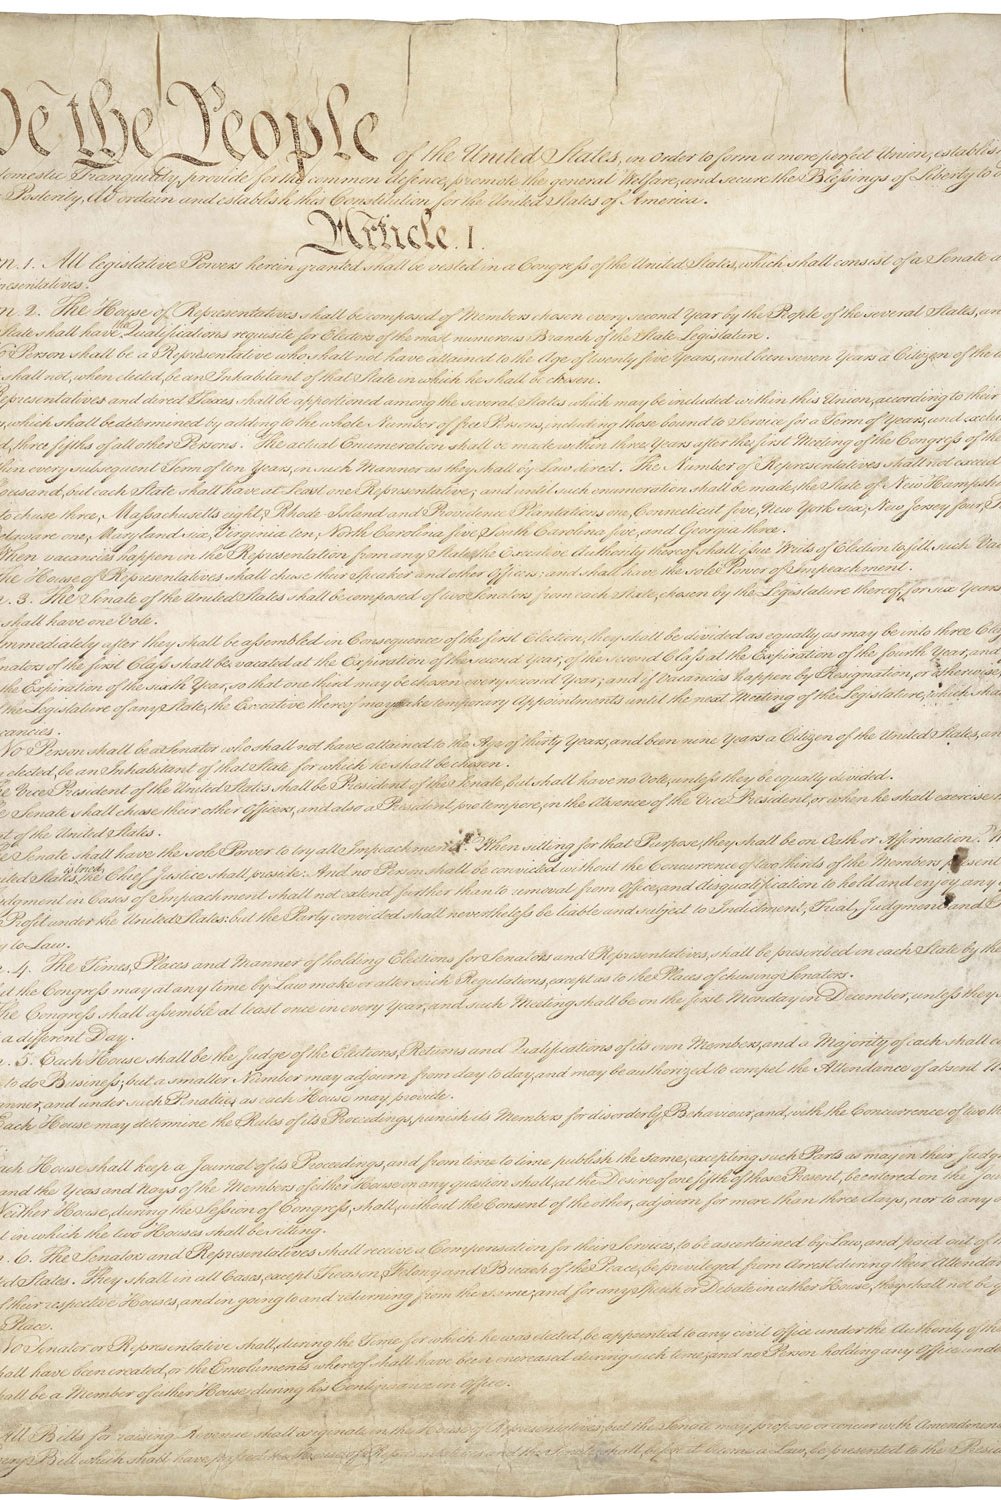 We the People of the United States, in Order to form a more perfect Union, establis
domestic Tranquility, provide for the common defence, promote the general Welfare, and secure the Blessings of Liberty to
Posterity, do ordain and establish this Constitution for the United States of America.
Article. I.
n. 1. All legislative Powers herein granted shall be vested in a Congress of the United States, which shall consist of a Senate a
resentatives.
n. 2. The House of Representatives shall be composed of Members chosen every second Year by the People of the several States, an
State shall have the Qualifications requisite for Electors of the most numerous Branch of the State Legislature.
No Person shall be a Representative who shall not have attained to the Age of twenty five Years, and been seven Years a Citizen of the
shall not, when elected, be an Inhabitant of that State in which he shall be chosen.
Representatives and direct Taxes shall be apportioned among the several States which may be included within this Union, according to their
which shall be determined by adding to the whole Number of free Persons, including those bound to Service for a Term of Years, and exclu
d, three fifths of all other Persons. The actual Enumeration shall be made within three Years after the first Meeting of the Congress of the
hin every subsequent Term of ten Years, in such Manner as they shall by Law direct. The Number of Representatives shall not exceed
housand, but each State shall have at Least one Representative; and until such enumeration shall be made, the State of New Hampshi
to chuse three, Massachusetts eight, Rhode-Island and Providence Plantations one, Connecticut five, New York six, New Jersey four,
elaware one, Maryland six, Virginia ten, North Carolina five, South Carolina five, and Georgia three.
When vacancies happen in the Representation from any State, the Executive Authority thereof shall issue Writs of Election to fill such Vac
The House of Representatives shall chuse their Speaker and other Officers; and shall have the sole Power of Impeachment.
n. 3. The Senate of the United States shall be composed of two Senators from each State, chosen by the Legislature thereof, for six Years
shall have one Vote.
Immediately after they shall be assembled in Consequence of the first Election, they shall be divided as equally as may be into three Cla
nators of the first Class shall be vacated at the Expiration of the second Year, of the second Class at the Expiration of the fourth Year, and
the Expiration of the sixth Year, so that one third may be chosen every second Year; and if Vacancies happen by Resignation, or otherwise,
the Legislature of any State, the Executive thereof may make temporary Appointments until the next Meeting of the Legislature, which shal
cancies.
No Person shall be a Senator who shall not have attained to the Age of thirty Years, and been nine Years a Citizen of the United States, an
elected, be an Inhabitant of that State for which he shall be chosen.
The Vice President of the United States shall be President of the Senate, but shall have no Vote, unless they be equally divided.
The Senate shall chuse their other Officers, and also a President pro tempore, in the Absence of the Vice President, or when he shall exercise
t of the United States.
The Senate shall have the sole Power to try all Impeachments. When sitting for that Purpose, they shall be on Oath or Affirmation.
ited States is tried, the Chief Justice shall preside: And no Person shall be convicted without the Concurrence of two thirds of the Members present
udgment in Cases of Impeachment shall not extend further than to removal from Office, and disqualification to hold and enjoy any
Profit under the United States: but the Party convicted shall nevertheless be liable and subject to Indictment, Trial, Judgment and
g to Law.
n. 4. The Times, Places and Manner of holding Elections for Senators and Representatives, shall be prescribed in each State by the
t the Congress may at any time by Law make or alter such Regulations, except as to the Places of chusing Senators.
The Congress shall assemble at least once in every Year, and such Meeting shall be on the first Monday in December, unless they
a different Day.
n. 5. Each House shall be the Judge of the Elections, Returns and Qualifications of its own Members, and a Majority of each shall co
to do Business; but a smaller Number may adjourn from day to day, and may be authorized to compel the Attendance of absent
anner, and under such Penalties as each House may provide.
Each House may determine the Rules of its Proceedings, punish its Members for disorderly Behaviour, and, with the Concurrence of two th
Each House shall keep a Journal of its Proceedings, and from time to time publish the same, excepting such Parts as may in their Judg
and the Yeas and Nays of the Members of either House on any question shall, at the Desire of one fifth of those Present, be entered on the Jou
Neither House, during the Session of Congress, shall, without the Consent of the other, adjourn for more than three days, nor to any o
t in which the two Houses shall be sitting.
n. 6. The Senators and Representatives shall receive a Compensation for their Services, to be ascertained by Law, and paid out of
ed States. They shall in all Cases, except Treason, Felony and Breach of the Peace, be privileged from Arrest during their Attendan
of their respective Houses, and in going to and returning from the same; and for any Speech or Debate in either House, they shall not be
Place.
No Senator or Representative shall, during the Time for which he was elected, be appointed to any civil Office under the Authority of the
hall have been created, or the Emoluments whereof shall have been encreased during such time; and no Person holding any Office unde
hall be a Member of either House during his Continuance in Office.
All Bills for raising Revenue shall originate in the House of Representatives; but the Senate may propose or concur with Amendments
Every Bill which shall have passed the House of Representatives and the Senate, shall, before it become a Law, be presented to the Presid